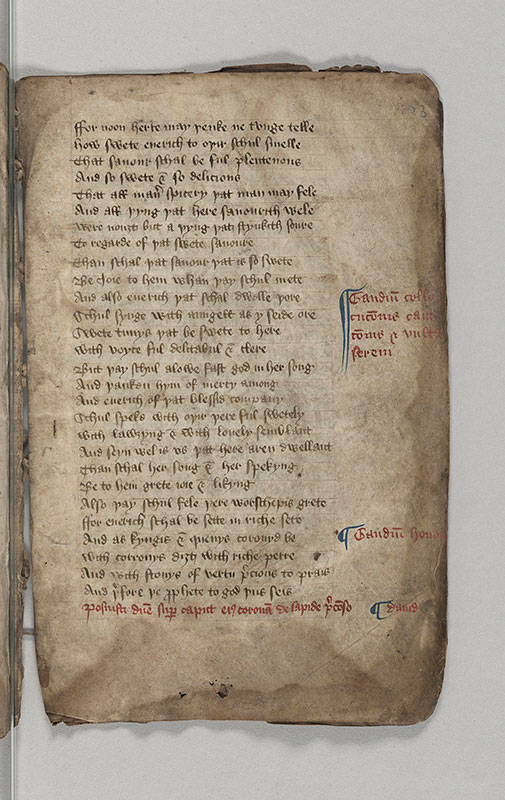 ffor noon herte may þenke ne tunge telle
how swete euerich to oþir schul smelle
That sauour schal be ful plentenous
And so swete & so delicious
That all man͛ spicery þat man may fele
And all þyng þat here sauourith wele
were nouȝt but a þyng þat stynkith soure
To regarde of þat swete sauoure
Than schal þat sauour þat is so swete
Be Joie to hem whan þay schul mete
And also euerich þat schal dwelle þore
Schul synge with aungell as y seide ore
Swete tunys þat be swete to here
with voyce ful delitabul & clere
But þay schul alowe fast god in her song
And þankon hym of mercy among
And euerich of þat blessid company
Schul speke with oþir þere ful swetely
with lawȝyng & with louely semblant
And seyn wel is vs þat here aren dwellant
Than schal her song & her spekyng
Be to hem grete ioie & likyng
Also þay schul fele þere worschepis grete
ffor euerich schal be sette in riche sete
And as kyngis & quenys corouned be
with corronys diȝt with riche perre
And with stonys of vertu p͛cious to prais
And þ͛fore þe p͛phete to god þus seis
Posuisti dn̄e sup͛ caput eiꝰ coronam de lapide p͛cioso
Gaudiū
serem
¶ Gaudiū hono
¶ dauid